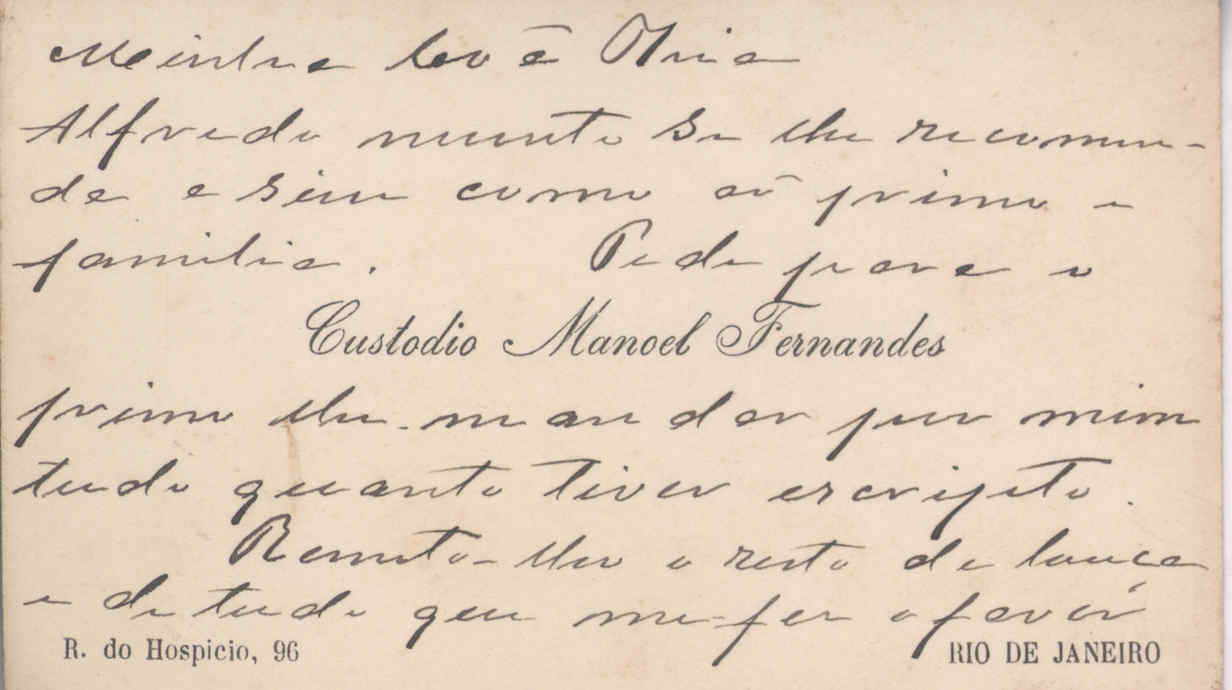 Minha bôa Tia
Alfredo muito se lhe recommen-
da e bem como ao primo e
familia. Pede para o
Custodio Manoel Fernandes
primo lhe mandar por mim
tudo quanto tiver escripto.
Remeto-lhe o resto da louça
e de tudo que me fez o favor
R. do Hospicio, 96
RIO DE JANEIRO